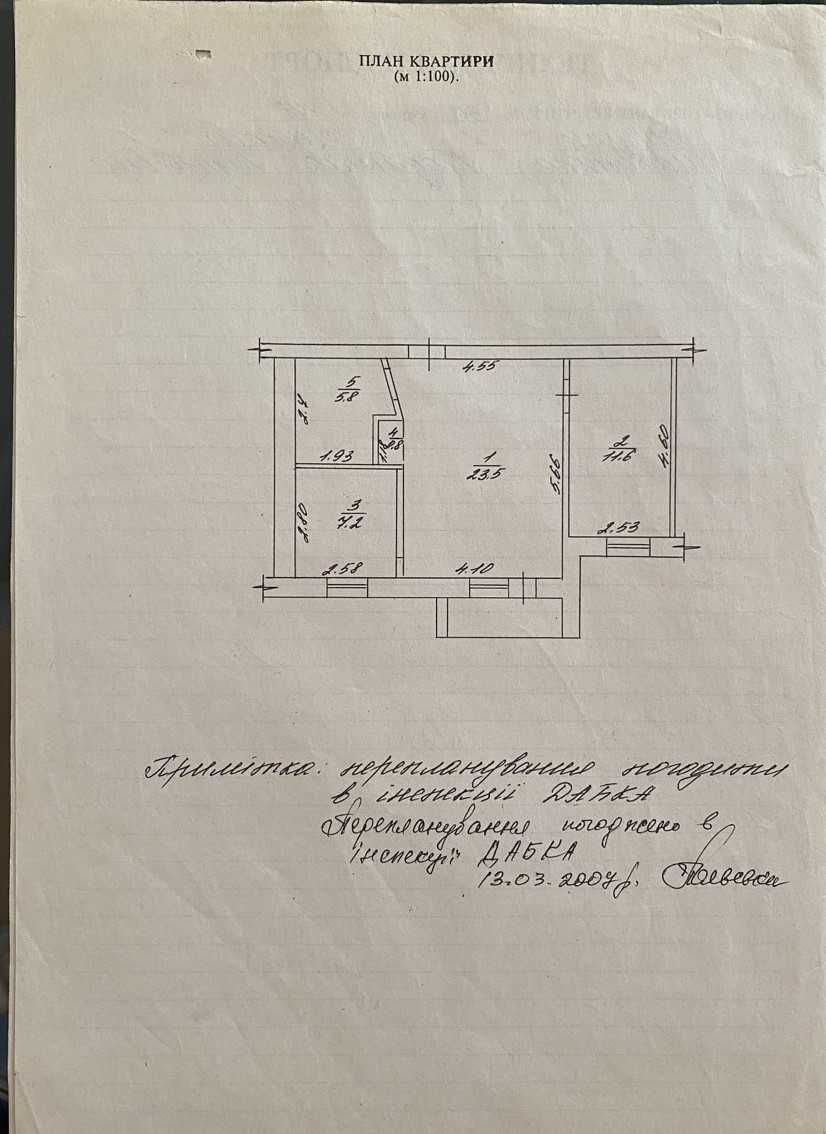 ПЛАН КВАРТИРИ
(м 1:100).
4.55
5
5.8
2.7
4
0.8
1.18
1.93
1
23.5
5.66
2
11.6
4.60
3
7.2
2.80
2.53
2.58
4.10
Примітка: перепланування погодити
в інспекції ДАБКА
Перепланування погоджено в
інспекції ДАБКА
13.03.2007р.